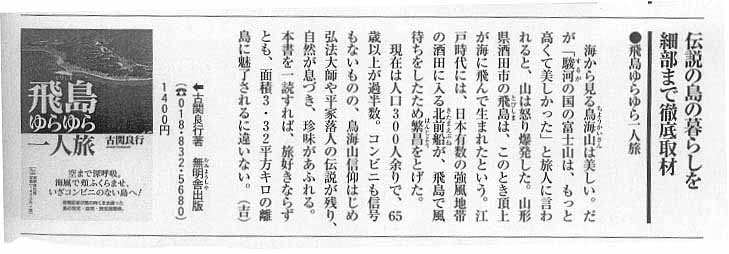 伝説の島の暮らしを
細部まで徹底取材
●飛島ゆらゆら一人旅
海から見る鳥海山は美しい。だ
が「駿河の国の富士山は、もっと
高くて美しかった」と旅人に言わ
れると、山は怒り爆発した。山形
県酒田市の飛島は、このとき頂上
が海に飛んで生まれたという。江
戸時代には、日本有数の強風地帯
の酒田に入る北前船が、飛島で風
待ちをしたため繁昌をとげた。
現在は人口300人余りで、65
歳以上が過半数。コンビニも信号
もないものの、鳥海山信仰はじめ
弘法大師や平家落人の伝説が残り、
自然が息づき、珍味があふれる。
本書を一読すれば、旅好きならず
とも、面積3・32平方キロの離
島に魅了されるに違いない。（吉）
⬅古関良行著 無明舎出版
（☎018・832・5680）
1400円
飛島
ゆらゆら
一人旅
古関良行
空まで深呼吸。
海風で頬ふくらませ、
いざコンビニのない島へ!